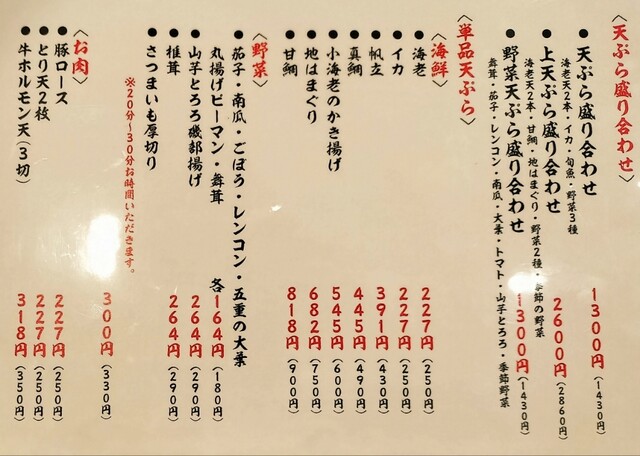 〈天ぷら盛り合わせ〉
● 天ぷら盛り合わせ 1300円(1430円)
海老天2本・イカ・旬魚・野菜3種
● 上天ぷら盛り合わせ 2600円(2860円)
海老天2本・甘鯛・地はまぐり・野菜2種・季節の野菜
● 野菜天ぷら盛り合わせ 1300円(1430円)
舞茸・茄子・レンコン・南瓜・大葉・トマト・山芋とろろ・季節野菜
〈単品天ぷら〉
〈海鮮〉
● 海老 227円(250円)
● イカ 227円(250円)
● 帆立 391円(430円)
● 真鯛 445円(490円)
● 小海老のかき揚げ 545円(600円)
● 地はまぐり 682円(750円)
● 甘鯛 818円(900円)
〈野菜〉
● 茄子・南瓜・ごぼう・レンコン・五重の大葉
丸揚げピーマン・舞茸 各164円(180円)
● 山芋とろろ磯部揚げ 264円(290円)
● 椎茸 264円(290円)
● さつまいも厚切り 300円(330円)
※20分〜30分お時間いただきます。
〈お肉〉
● 豚ロース 227円(250円)
● とり天2枚 227円(250円)
● 牛ホルモン天(3切) 318円(350円)